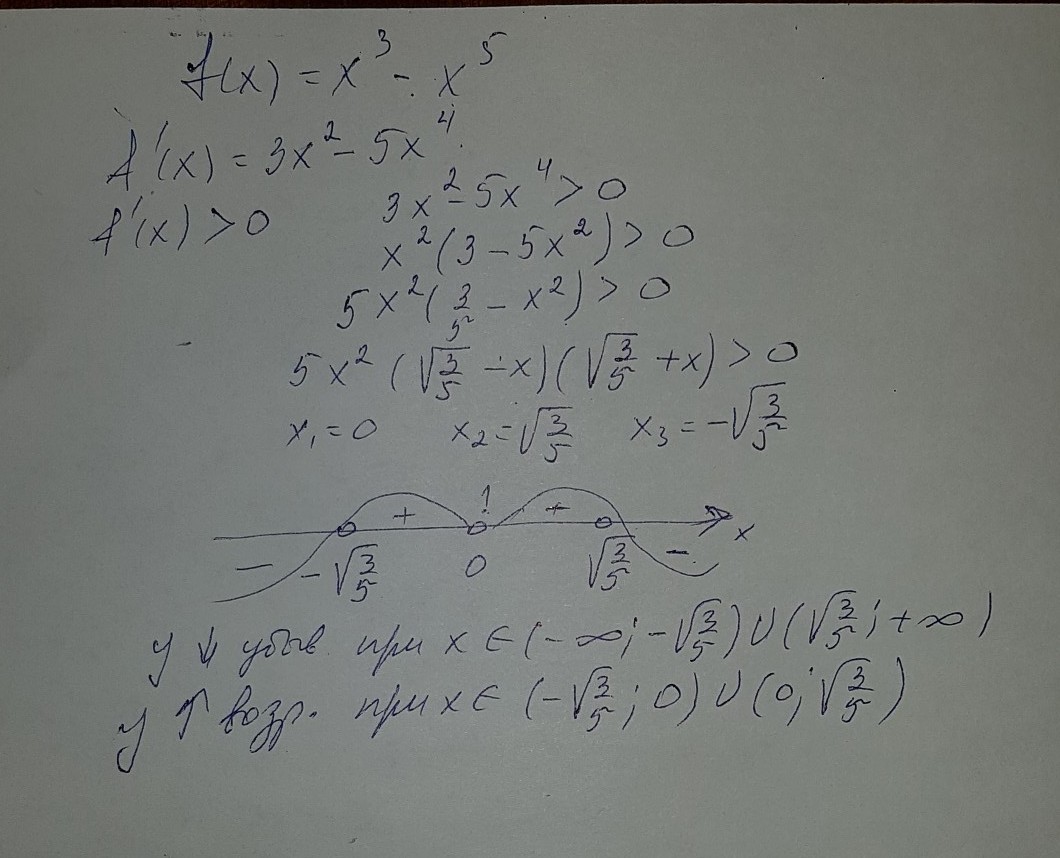 f(x) = x³ - x⁵
f'(x) = 3x² - 5x⁴
3x² - 5x⁴ > 0
f'(x) > 0
x²(3 - 5x²) > 0
5x²(3/5 - x²) > 0
5x²(√(3/5) - x)(√(3/5) + x) > 0
x₁ = 0 x₂ = √(3/5) x₃ = -√(3/5)
+ ! + x
- -√(3/5) 0 √(3/5) -
y ↓ убыв. при x ∈ (-∞; -√(3/5)) ∪ (√(3/5); +∞)
y ↑ возр. при x ∈ (-√(3/5); 0) ∪ (0; √(3/5))